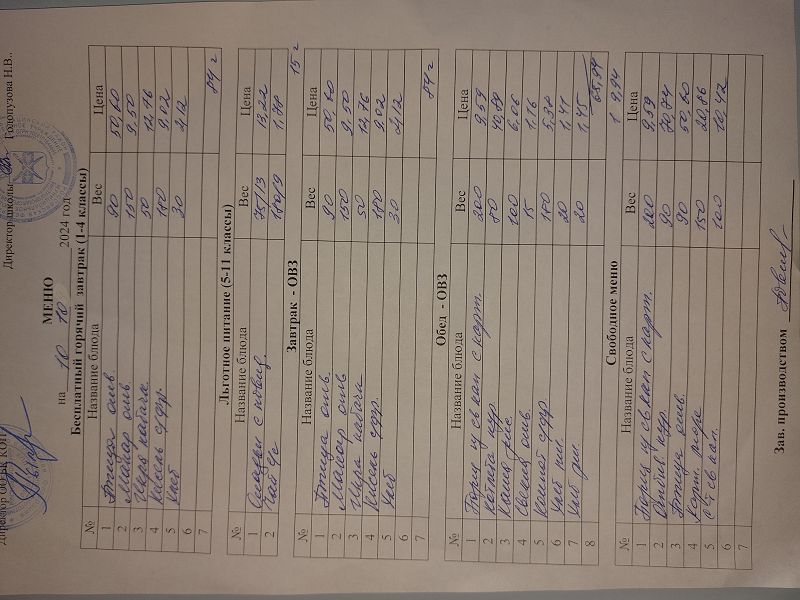 Директор школы Голопузова Н.В.
МЕНЮ
на 10 10 2024 год
Бесплатный горячий завтрак (1-4 классы)
№ Название блюда Вес Цена
1 Птица отв. 90 50,60
2 Макар отв. 150 9,50
3 Икра кабачк. 50 12,76
4 Кисель с/фр. 180 9,02
5 Хлеб 30 2,12
6
7 84 г
Льготное питание (5-11 классы)
№ Название блюда Вес Цена
1 Оладьи с повид. 75/13 13,22
2 Чай с/с 180/9 1,78
15 г
Завтрак - ОВЗ
№ Название блюда Вес Цена
1 Птица отв. 90 50,60
2 Макар отв 150 9,50
3 Икра кабачк 50 12,76
4 Кисель с/фр. 180 9,02
5 Хлеб 30 2,12
6
7 84 г
Обед - ОВЗ
№ Название блюда Вес Цена
1 Борщ из св кап с карт. 200 9,59
2 Котлета кур 80 40,89
3 Каша 100 6,06
4 Свекла отв. 15 1,16
5 Компот с/фр 180 5,38
6 Хлеб пш. 20 1,41
7 Хлеб рж. 20 1,45
8 65,94
Свободное меню
№ Название блюда Вес Цена
1 Борщ из св кап с карт. 200 9,59
2 кур. 90 70,74
3 Птица отв. 90 50,60
4 Карт. пюре 150 20,86
5 св кап. 100 10,42
6
7
Зав. производством